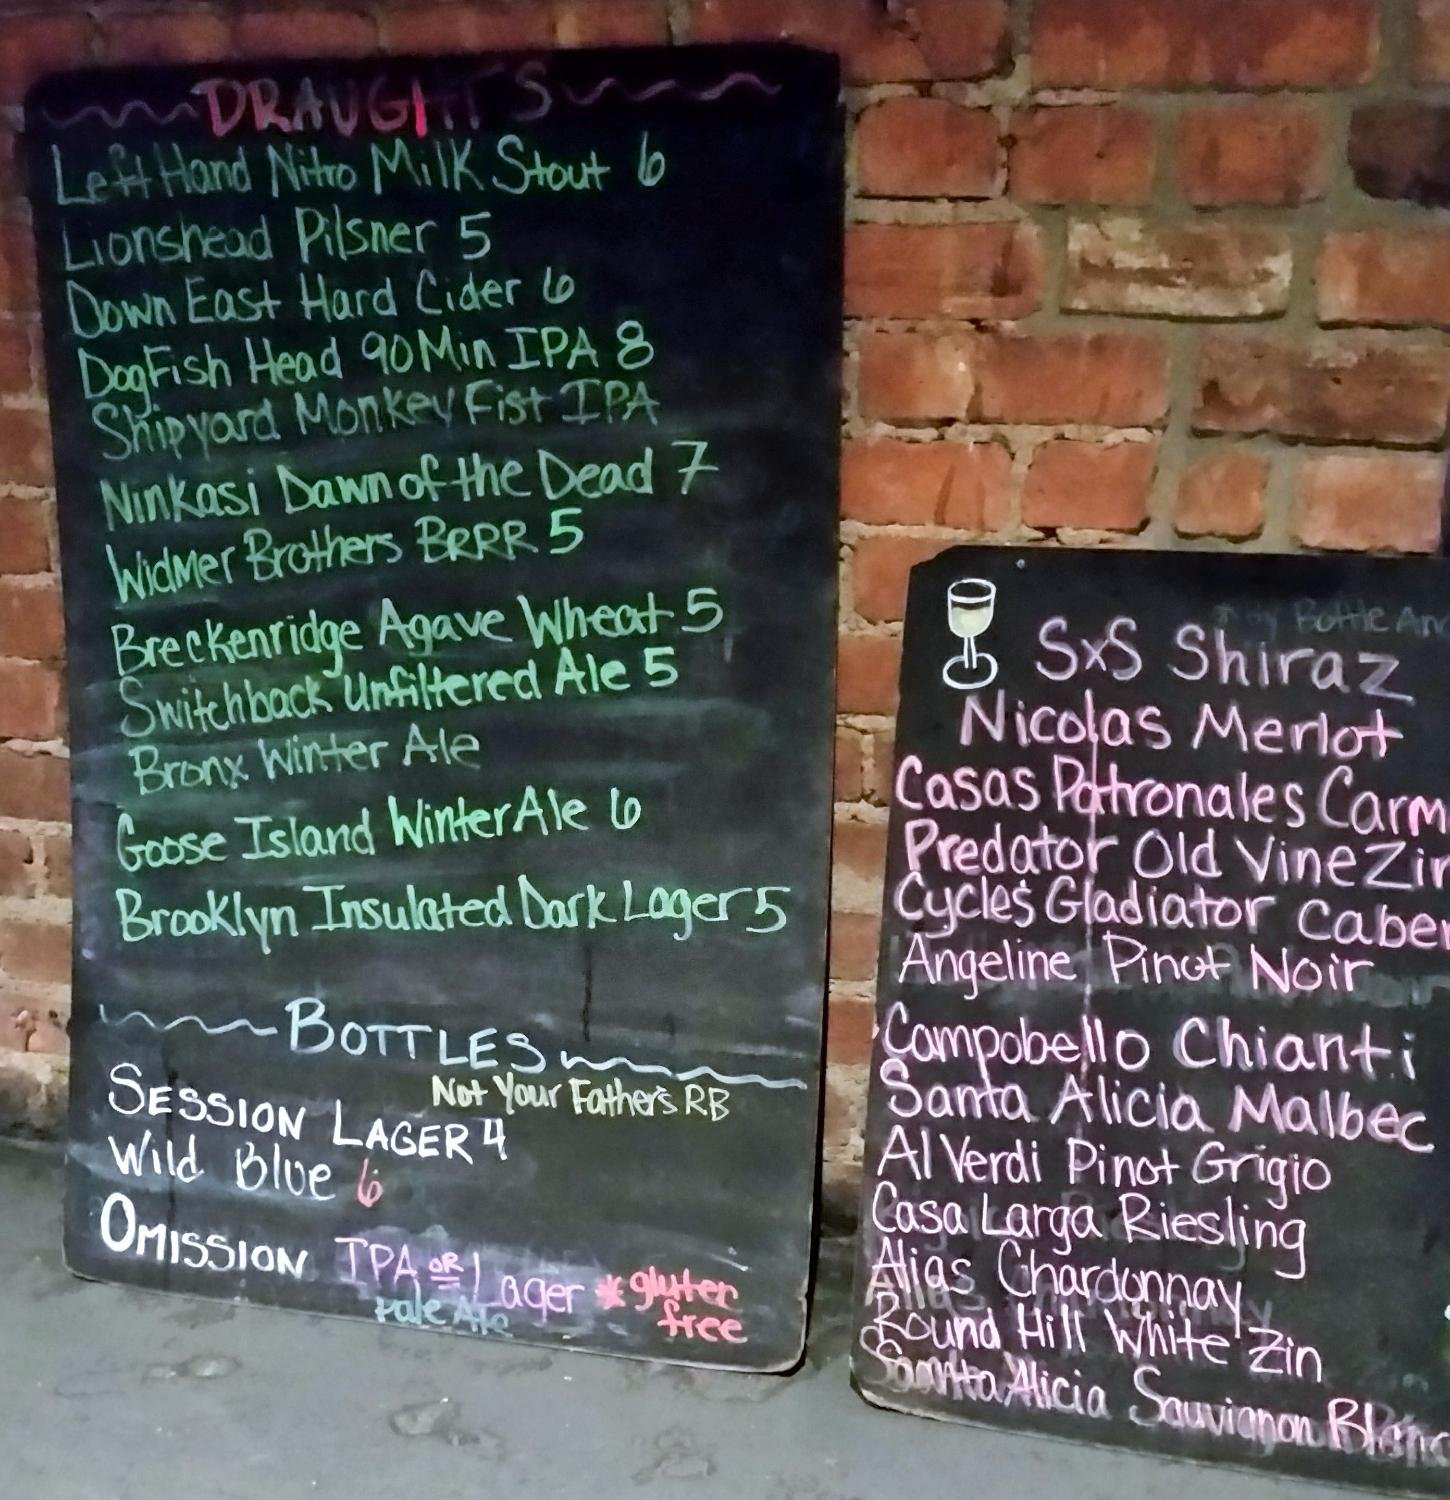 DRAUGHTS
Left Hand Nitro Milk Stout 6
Lionshead Pilsner 5
Down East Hard Cider 6
DogFish Head 90 Min IPA 8
Shipyard Monkey Fist IPA
Ninkasi Dawn of the Dead 7
Widmer Brothers BRRR 5
Breckenridge Agave Wheat 5
Switchback Unfiltered Ale 5
Bronx Winter Ale
Goose Island Winter Ale 6
Brooklyn Insulated Dark Lager 5
BOTTLES
Not Your Father's RB
SESSION LAGER 4
Wild Blue 6
OMISSION IPA OR Lager * gluten
Pale Ale free
Bottle
SxS Shiraz
Nicolas Merlot
Casas Patronales Carm
Predator Old Vine Zin
Cycles Gladiator Caber
Angeline Pinot Noir
Campobello Chianti
Santa Alicia Malbec
Al Verdi Pinot Grigio
Casa Larga Riesling
Alias Chardonnay
Round Hill White Zin
Santa Alicia Sauvignon Blanc